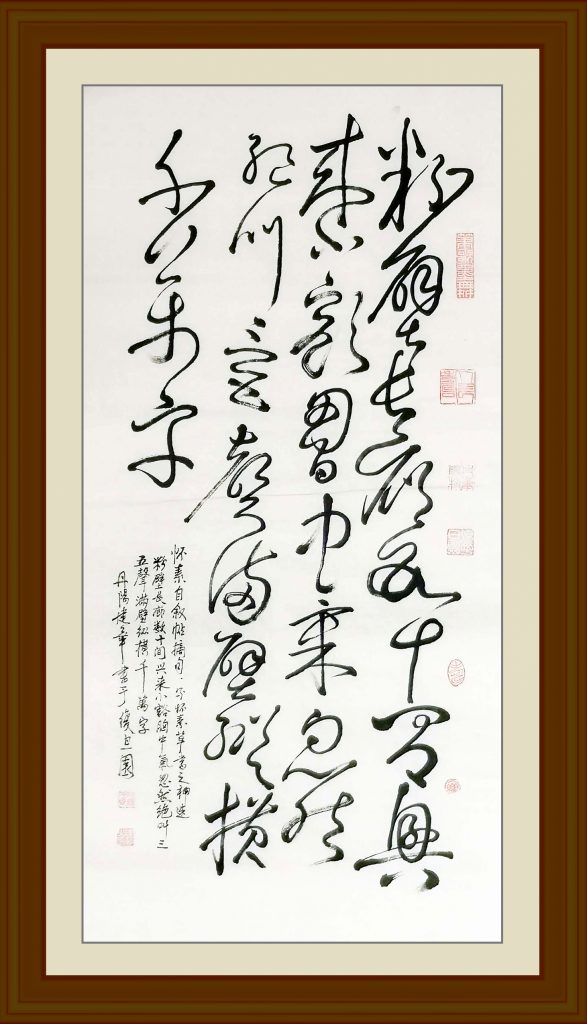 粉壁長廊數十間興
來小豁胸中氣忽然
絕叫三五聲滿壁縱橫
千萬字
怀素自敘帖摘句·怀素草書之神迹
粉壁長廊数十间兴来小豁胸中氣忽然絶叫三
五聲滿壁纵横千萬字
丹陽建華书于復旦園